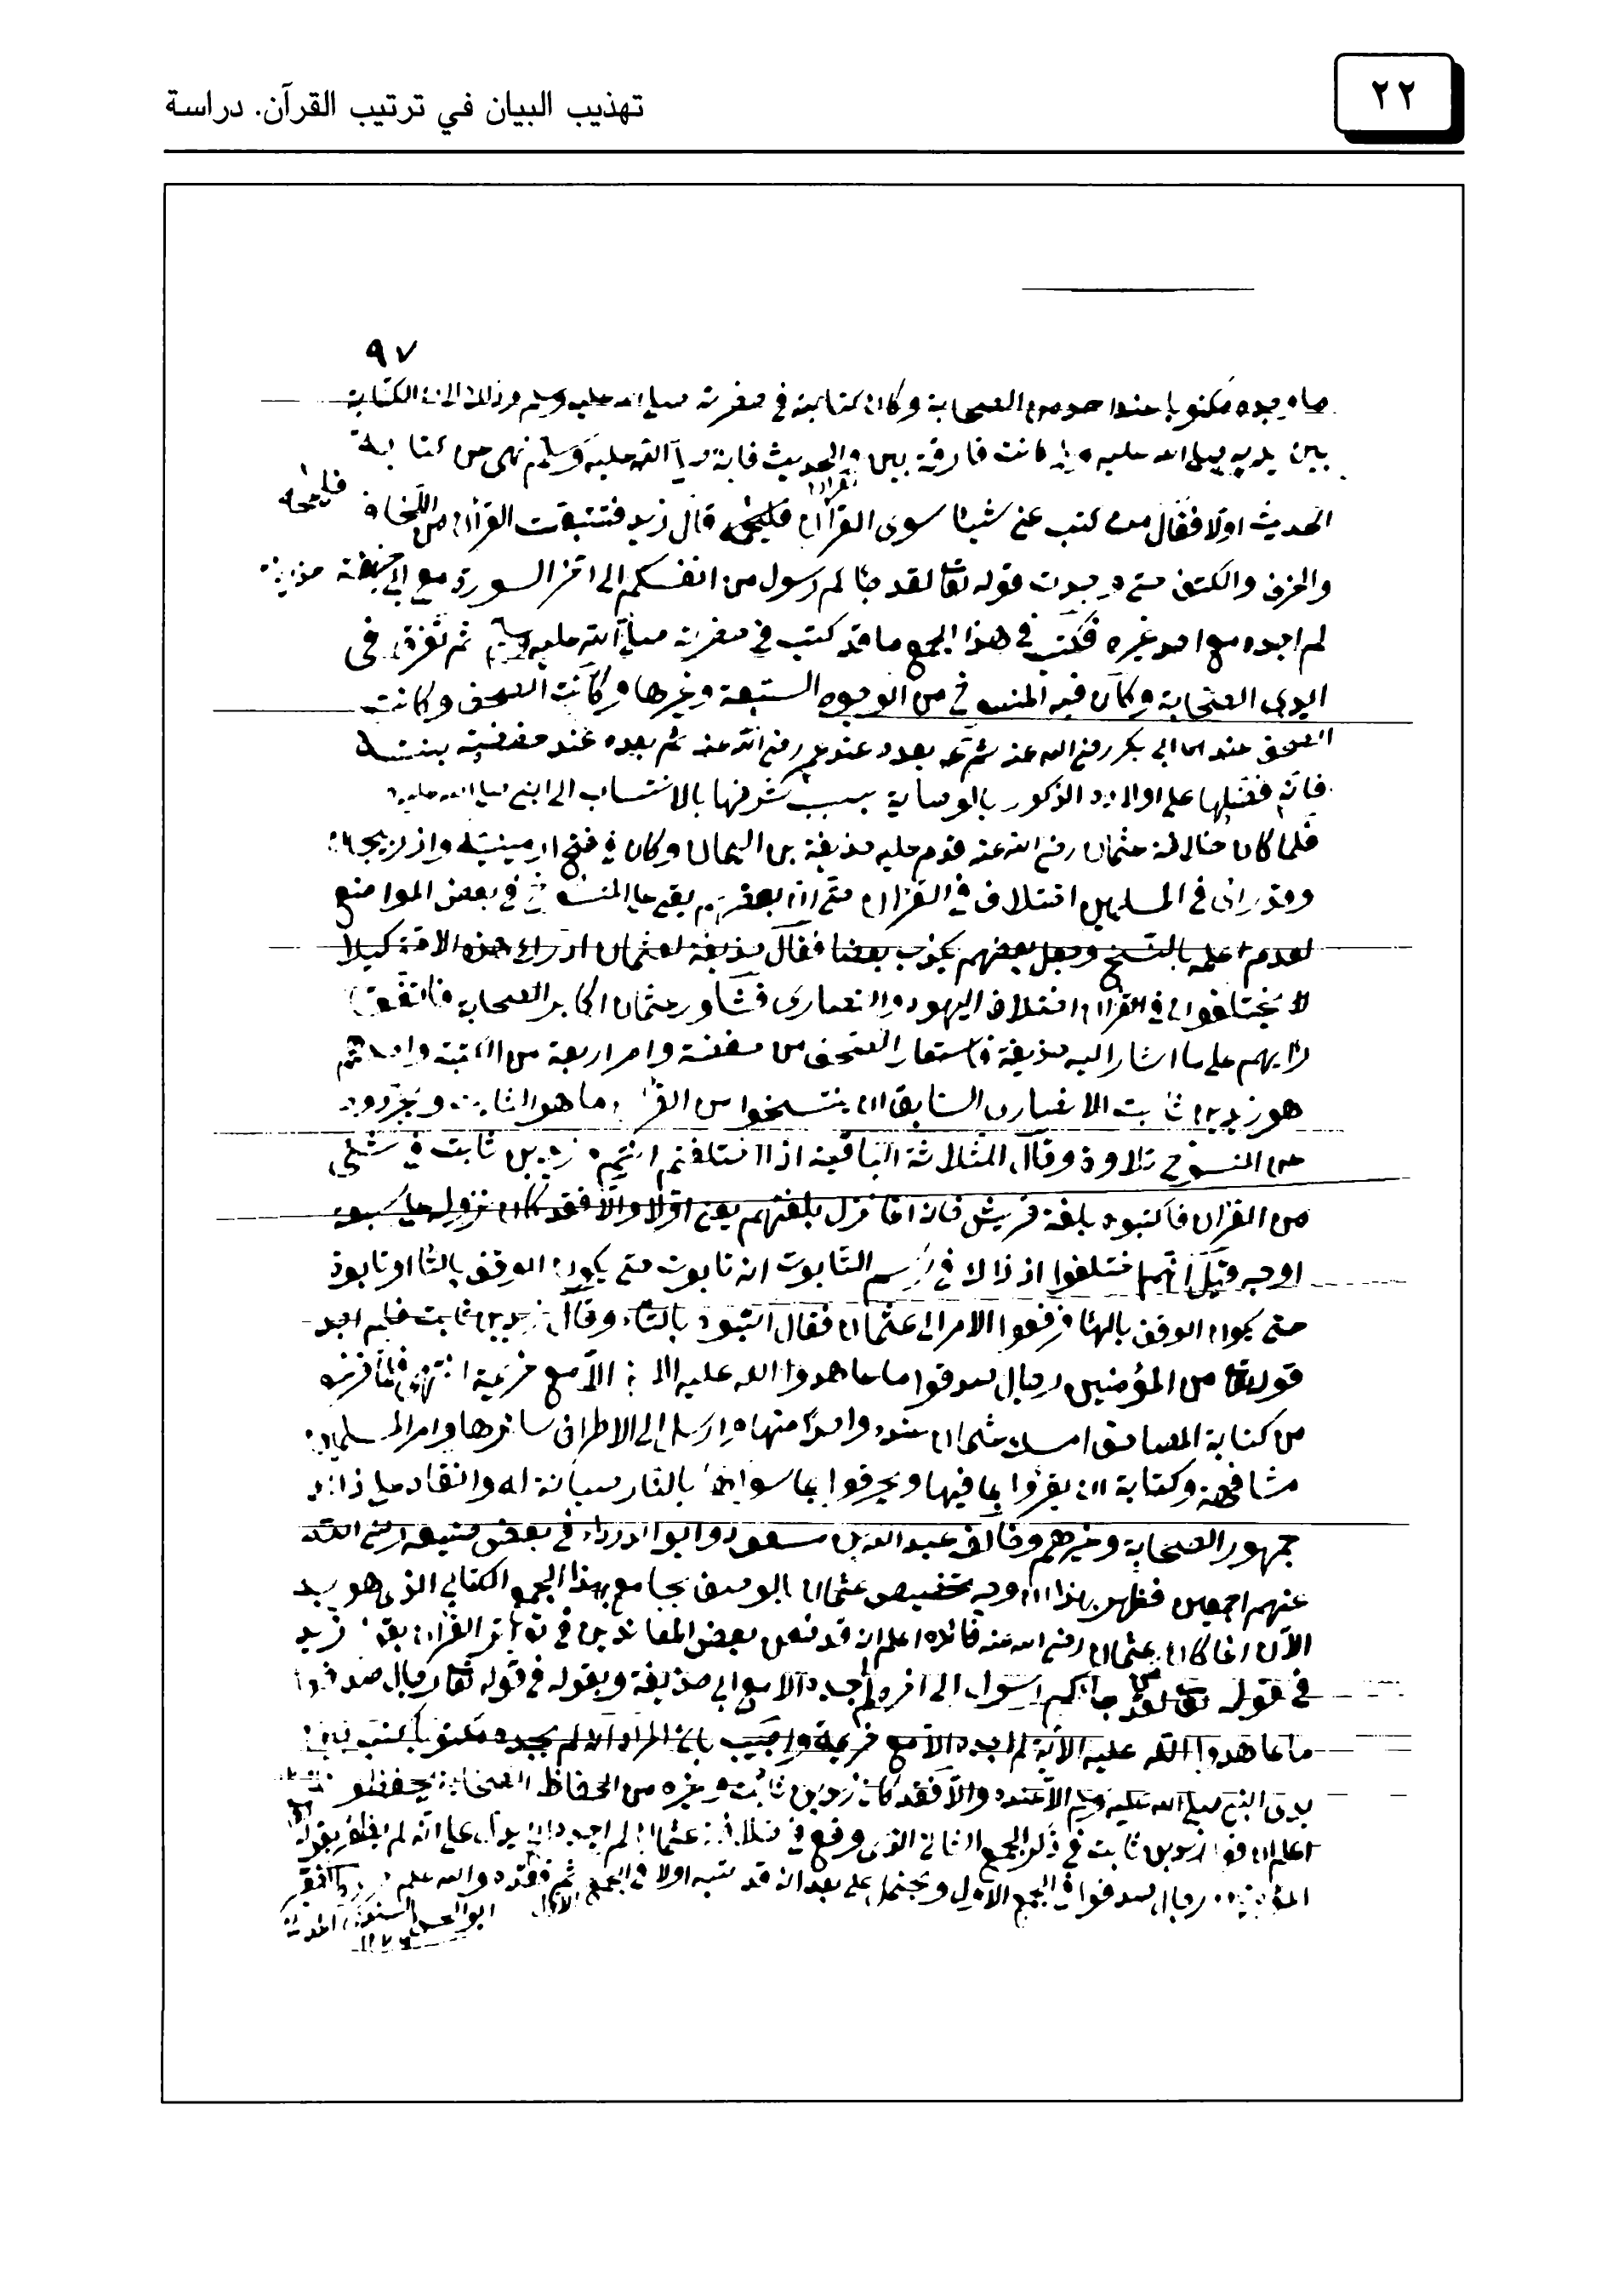 ٢٢
تهذيب البيان في ترتيب القرآن. دراسة
٩٧
ما وجده مكتوبا عند احد من الصحابة وكان كتابته في حضرته صلى الله عليه وسلم وذلك لان الكتابة
بين يديه صلى الله عليه كانت فارقة بين والحديث فانه صلى الله عليه وسلم نهى عن كتابة
القرآن
الحديث اولا فقال من كتب عني شيئا سوى القرآن فليمحه قال زيد فتتبعت القرآن من اللخاف
فليمحه
والخزف والكتف حتى وجدت قوله تعالى لقد جاءكم رسول من انفسكم الى اخر السورة مع ابي خزيمة
لم اجده مع احد غيره فكتب في هذا الجمع ما قد كتب في حضرته صلى الله عليه وسلم ثم تفرق في
ايدى الصحابة وكان فيه المنسوخ من الوجوه السبعة وغيرها وكانت الصحف وكانت
الصحف عند ابي بكر رضي الله عنه ثم بعده عند عمر رضي الله عنه ثم بعده عند حفصة بنته
فانه فضلها على اولاده الذكور بالوصاية بسبب شرفها بالانتساب الى النبي صلى الله عليه
فلما كان خلافة عثمان رضي الله عنه قدم عليه حذيفة بن اليمان وكان في فتح ارمينية واذربيجان
وقد رأى في المسلمين اختلاف في القرآن حتى ان بعضهم بقي على المنسوخ في بعض المواضع
لعدم علمه بالنسخ وجعل بعضهم يكذب بعضا فقال حذيفة لعثمان ادرك هذه الامة كيلا
لا يختلفوا في القرآن اختلاف اليهود والنصارى فشاور عثمان اكابر الصحابة فاتفق
رأيهم على ما اشار اليه حذيفة فاستعار الصحف من حفصة وامر اربعة من الكتبة واحدهم
هو زيد بن ثابت الانصاري السابق ان ينتسخوا من القرآن ما هو الثابت ويجردوه
عن المنسوخ تلاوة وقال للثلاثة الباقية اذا اختلفتم انتم وزيد بن ثابت في شيء
من القرآن فاكتبوه بلغة قريش فانه انما نزل بلغتهم يعني اولا والا فقد كان نزوله على سبعة
اوجه وقيل انهم اختلفوا اذ ذاك في رسم التابوت انه تابوت حتى يكون الوقف بالتا او تابوة
حتى يكون الوقف بالهاء فرفعوا الامر الى عثمان فقال اكتبوه بالتاء وقال زيد بن ثابت فلم اجد
قوله تعالى من المؤمنين رجال صدقوا ما عاهدوا الله عليه الا مع خزيمة انتهى فلما فرغ
من كتابة المصاحف امسك عثمان عنده واحدا منها وارسل الى الاطراف سائرها وامر المسلمين
مشافهة وكتابة ان يقرؤا بما فيها ويحرقوا ما سواها بالنار صيانة له وانقاد على ذلك
جمهور الصحابة وغيرهم وخالف عبد الله بن مسعود وابو الدرداء في بعض صنيعه رضي الله
عنهم اجمعين فظهر بهذا ان وجه تخصيص عثمان بالوصف بجامع بهذا الجمع الكتابي الذي هو بيد
الآن انما كان عثمان رضي الله عنه فائدة اعلم انه قد طعن بعض المعاندين في تواتر القرآن بقول زيد
في قوله تعالى لقد جاءكم رسول الى اخره لم اجده الا مع ابي خزيمة وبقوله في قوله تعالى رجال صدقوا
ما عاهدوا الله عليه الآية لم اجده الا مع خزيمة واجيب بان المراد انه لم يجده مكتوبا كتب بين
يدى النبي صلى الله عليه وسلم الا عنده والا فقد كان زيد بن ثابت وغيره من الحفاظ الصحابة يحفظونه
اعلم ان قول زيد بن ثابت في ذكر الجمع الثاني الذى وقع في خلافة عثمان لم اجد يدل على انه لم يظفر بقوله
المؤمنين رجال صدقوا في الجمع الاول ويحتمل على بعد انه قد كتبه اولا في الجمع الاول ثم فقده والله اعلم
ابو الحسن السندي المدني